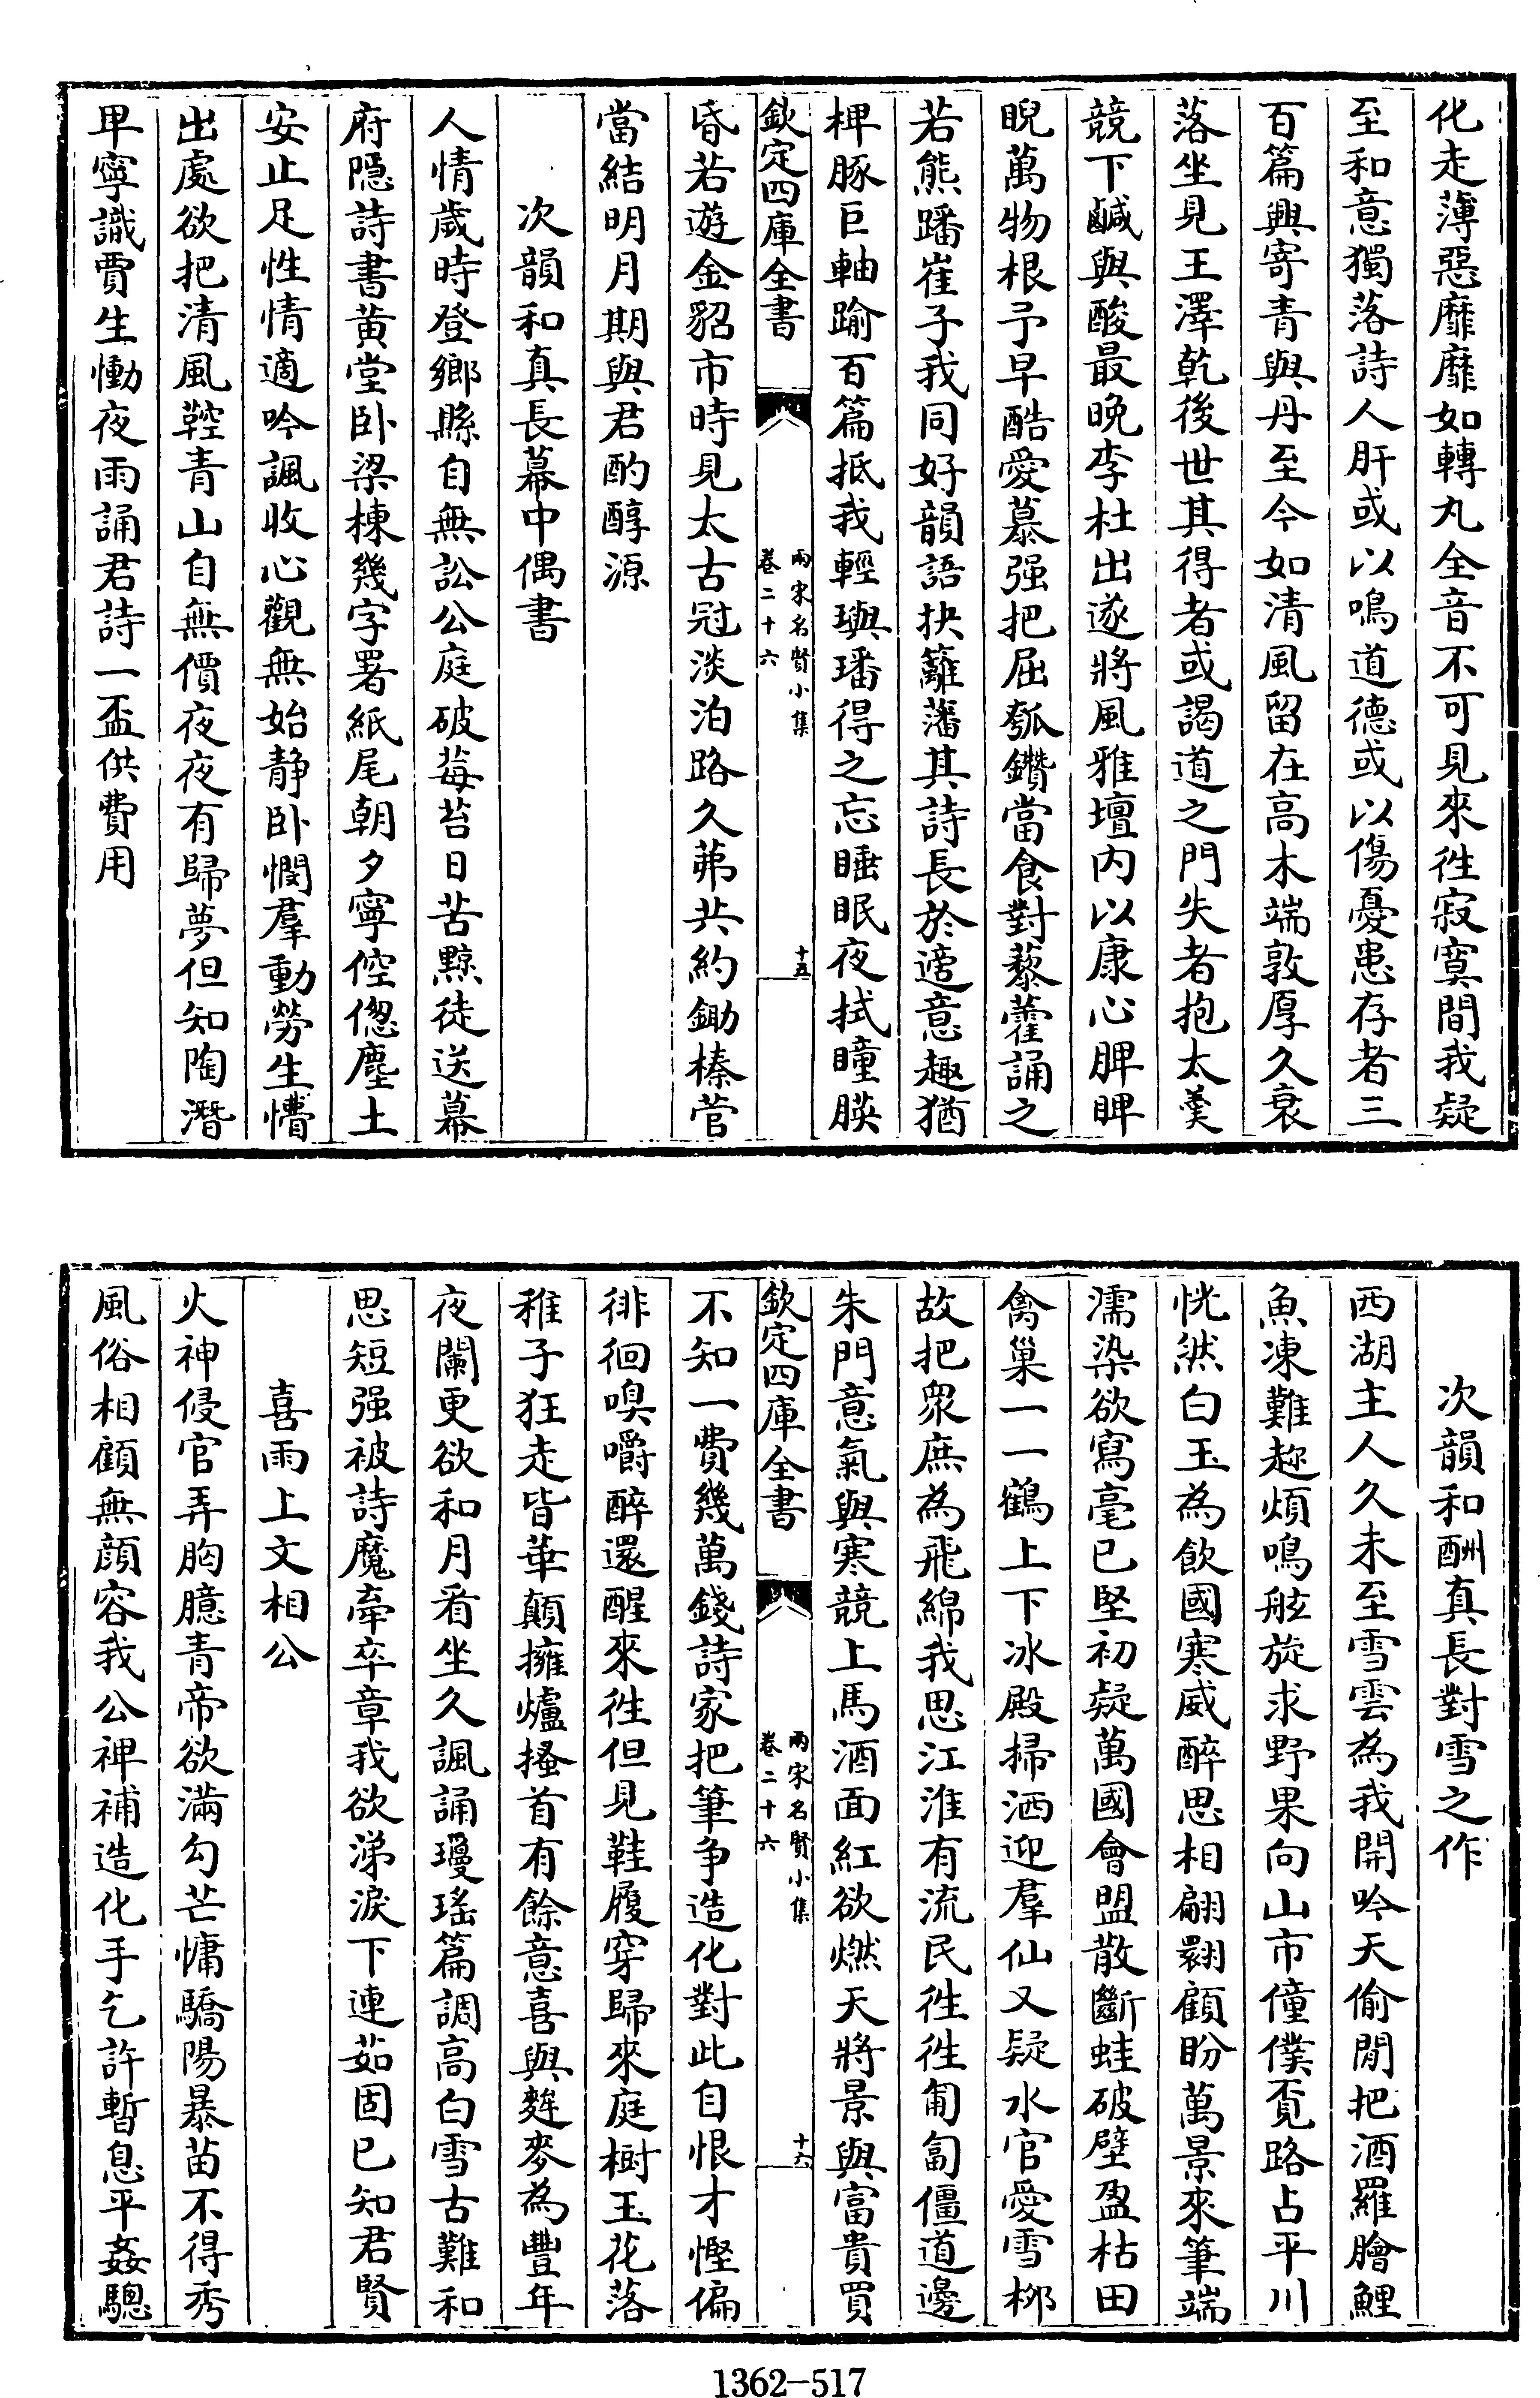 化走薄惡靡靡如轉丸全音不可見來徃寂寞間我疑
至和意獨落詩人肝或以鳴道德或以傷憂患存者三
百篇興寄青與丹至今如清風留在高木端敦厚久衰
落坐見王澤乾後世其得者或謁道之門失者抱太羮
競下鹹與酸最晚李杜出遂將風雅壇内以康心脾睥
睨萬物根予早酷愛慕强把屈瓠鑽當食對藜藿誦之
若熊蹯崔子我同好韻語抉籬藩其詩長於適意趣猶
椑豚巨軸踰百篇抵我輕璵璠得之忘睡眠夜拭瞳䏐
欽定四庫全書
兩宋名賢小集
卷二十六
十五
昏若遊金貂市時見太古冠淡泊路久茀共約鋤榛菅
當結明月期與君酌醇源
次韻和真長幕中偶書
人情歲時登鄉縣自無訟公庭破莓苔日苦黥徒送幕
府隱詩書黄堂卧梁棟幾字署紙尾朝夕寧倥偬塵土
安止足性情適吟諷收心觀無始静卧憫羣動勞生懵
出處欲把清風鞚青山自無價夜夜有歸夢但知陶潛
卑寧識賈生慟夜雨誦君詩一盃供費用
次韻和酬真長對雪之作
西湖主人久未至雪雲為我開吟天偷閒把酒羅膾鯉
魚凍難趂煩鳴舷旋求野果向山市僮僕覔路占平川
恍然白玉為飲國寒威醉思相翩翾顧盼萬景來筆端
濡染欲寫毫已堅初疑萬國會盟散斷蛙破壁盈枯田
禽巢一一鶴上下冰殿掃洒迎羣仙又疑水官愛雪柳
故把衆庶為飛綿我思江淮有流民徃徃匍匐僵道邊
朱門意氣與寒競上馬酒面紅欲燃天將景與富貴買
欽定四庫全書
兩宋名賢小集
卷二十六
十六
不知一費幾萬錢詩家把筆争造化對此自恨才慳偏
徘徊嗅嚼醉還醒來徃但見鞋履穿歸來庭樹玉花落
稚子狂走皆華顛擁爐搔首有餘意喜與麰麥為豐年
夜闌更欲和月看坐久諷誦瓊瑤篇調高白雪古難和
思短强被詩魔牽卒章我欲涕淚下連茹固已知君賢
喜雨上文相公
火神侵官弄胸臆青帝欲滿勾芒慵驕陽暴苗不得秀
風俗相顧無顔容我公裨補造化手乞許暫息平姦驄
1362-517